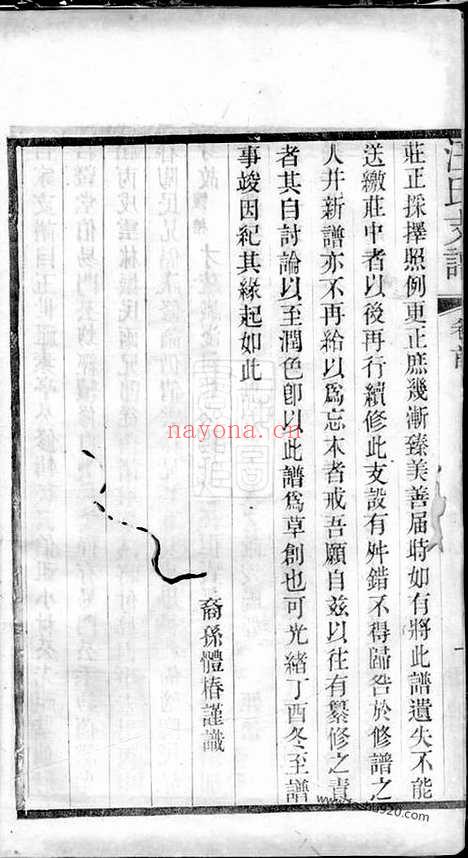 汪氏支譜 卷首
莊正採擇照例更正庶幾漸臻美善届時如有將此譜遺失不能
送繳莊中者以後再行續修此支設有舛錯不得歸咎於修譜之
人并新譜亦不再給以爲忘本者戒吾願自兹以往有纂修之責
者其自討論以至潤色卽以此譜爲草創也可光緒丁酉冬至譜
事竣因紀其緣起如此
裔孫體椿謹識
nayona.cn